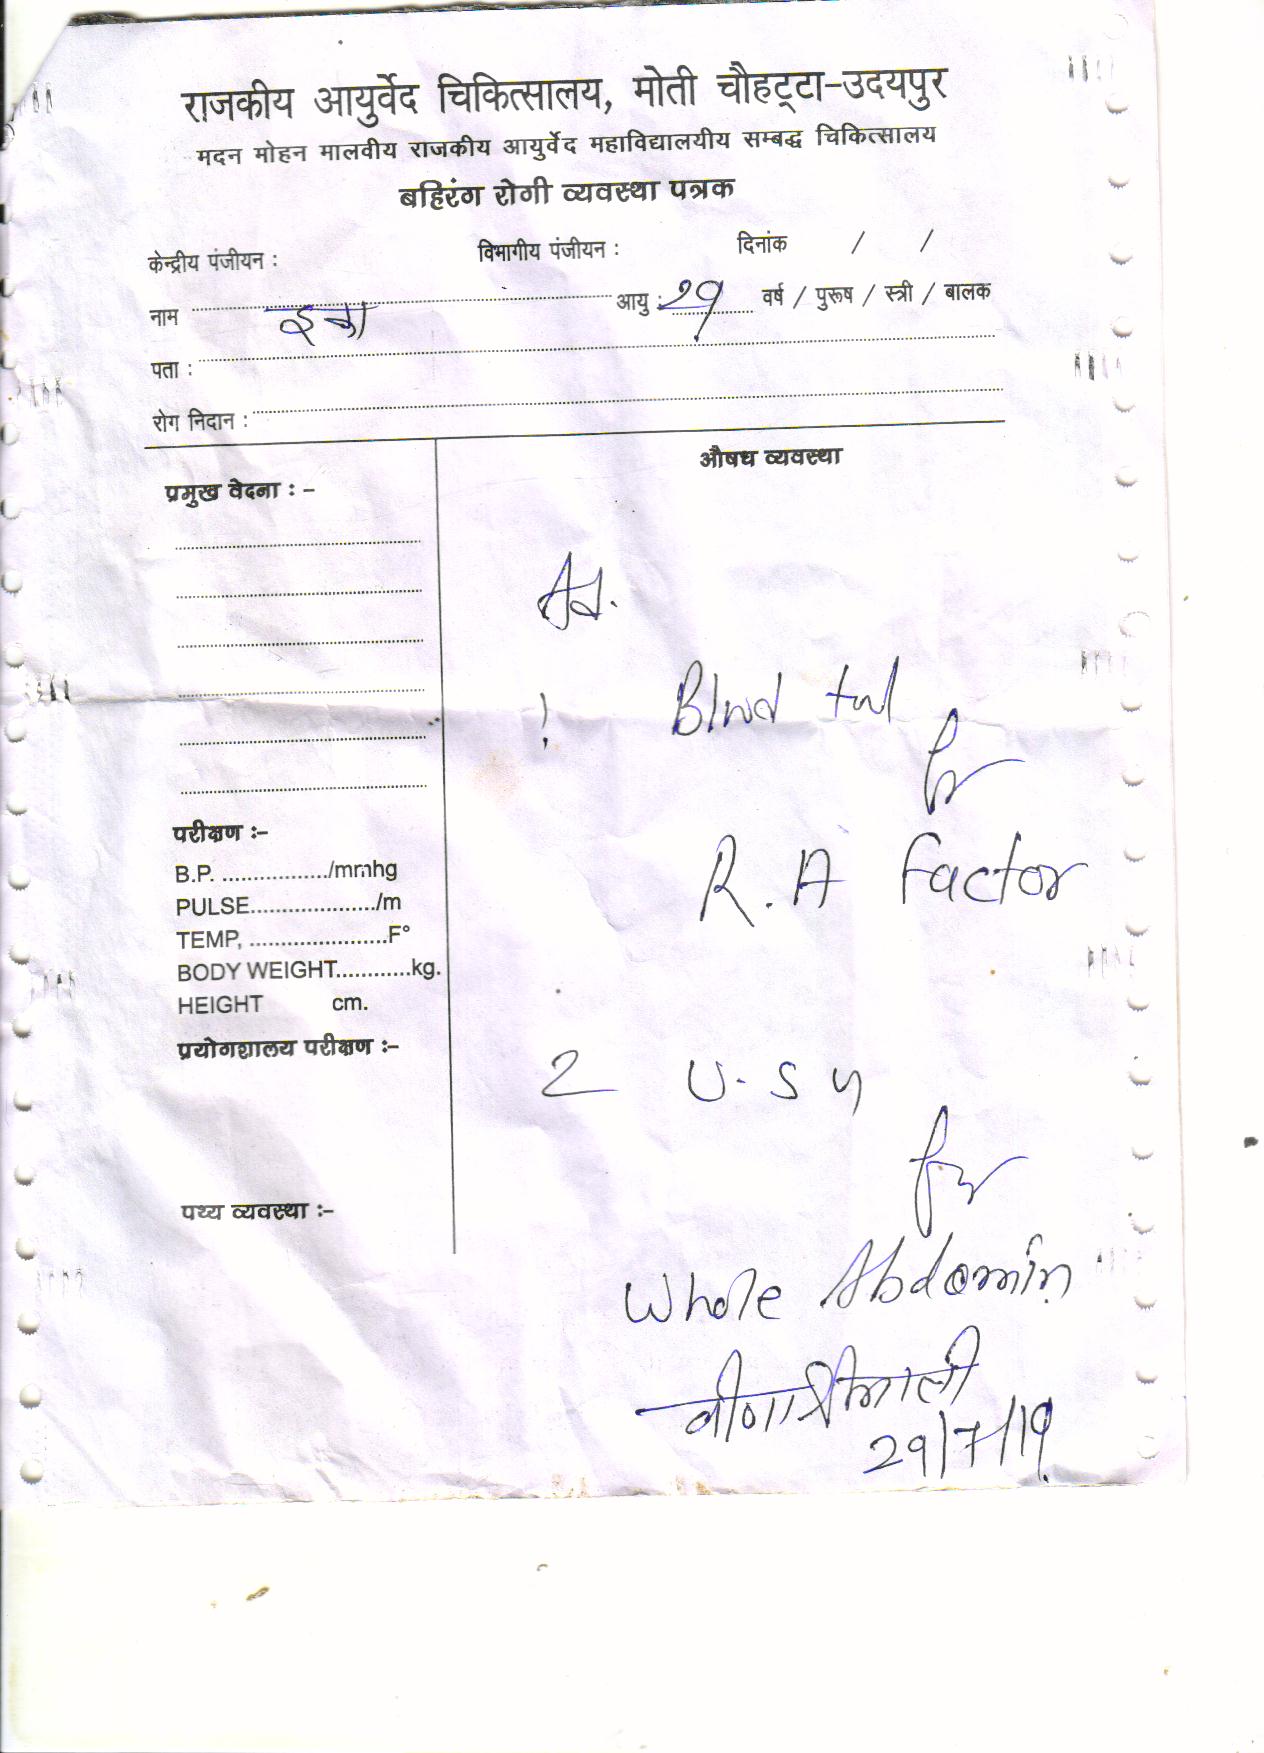 राजकीय आयुर्वेद चिकित्सालय, मोती चौहट्टा-उदयपुर
मदन मोहन मालवीय राजकीय आयुर्वेद महाविद्यालयीय सम्बद्ध चिकित्सालय
बहिरंग रोगी व्यवस्था पत्रक
केन्द्रीय पंजीयन : विभागीय पंजीयन : दिनांक / /
नाम आयु : 29 वर्ष / पुरूष / स्त्री / बालक
पता :
रोग निदान :
प्रमुख वेदना : -
परीक्षण :-
B.P. ................/mmhg
PULSE..................../m
TEMP, ......................F°
BODY WEIGHT............kg.
HEIGHT cm.
प्रयोगशालय परीक्षण :-
पथ्य व्यवस्था :-
औषध व्यवस्था
Ad.
Blood
for
R.A factor
2 U.S G
for
Whole Abdomin
वीणा श्रीमाली
29/7/19